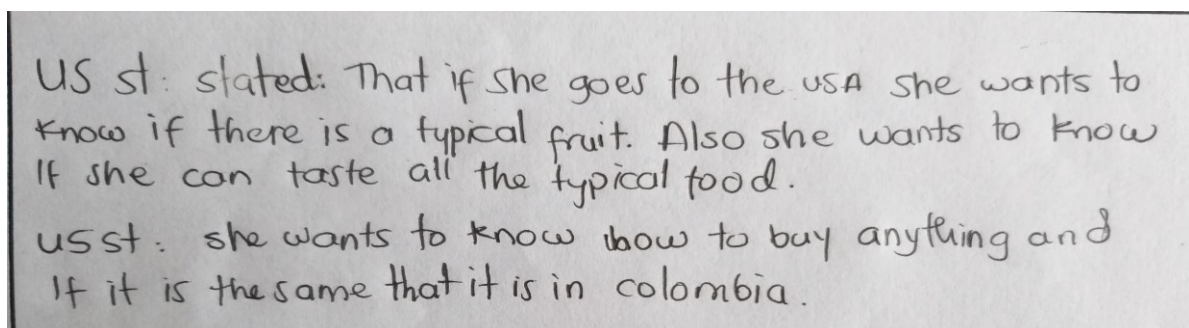 US st: stated: That if she goes to the USA she wants to
know if there is a typical fruit. Also she wants to know
If she can taste all the typical food.
US st: she wants to know how to buy anything and
If it is the same that it is in colombia.